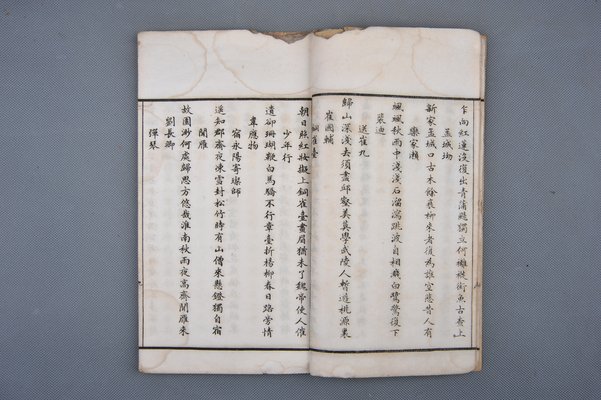 乍向紅蓮沒復出青蒲颺獨立何褵褷銜魚古查上
孟城坳
新家孟城口古木餘衰柳來者復為誰空悲昔人有
欒家瀨
颯颯秋雨中淺淺石溜瀉跳波自相濺白鷺驚復下
裴迪
送崔九
歸山深淺去須盡邱壑美莫學武陵人暫遊桃源裏
崔國輔
銅雀臺
朝日照紅妝擬上銅雀臺畫眉猶未了魏帝使人催
少年行
遺卻珊瑚鞭白馬驕不行章臺折楊柳春日路旁情
韋應物
宿永陽寄璨師
遙知郡齋夜凍雪封松竹時有山僧來懸鐙獨自宿
聞雁
故園渺何處歸思方悠哉淮南秋雨夜高齋聞雁來
劉長卿
彈琴